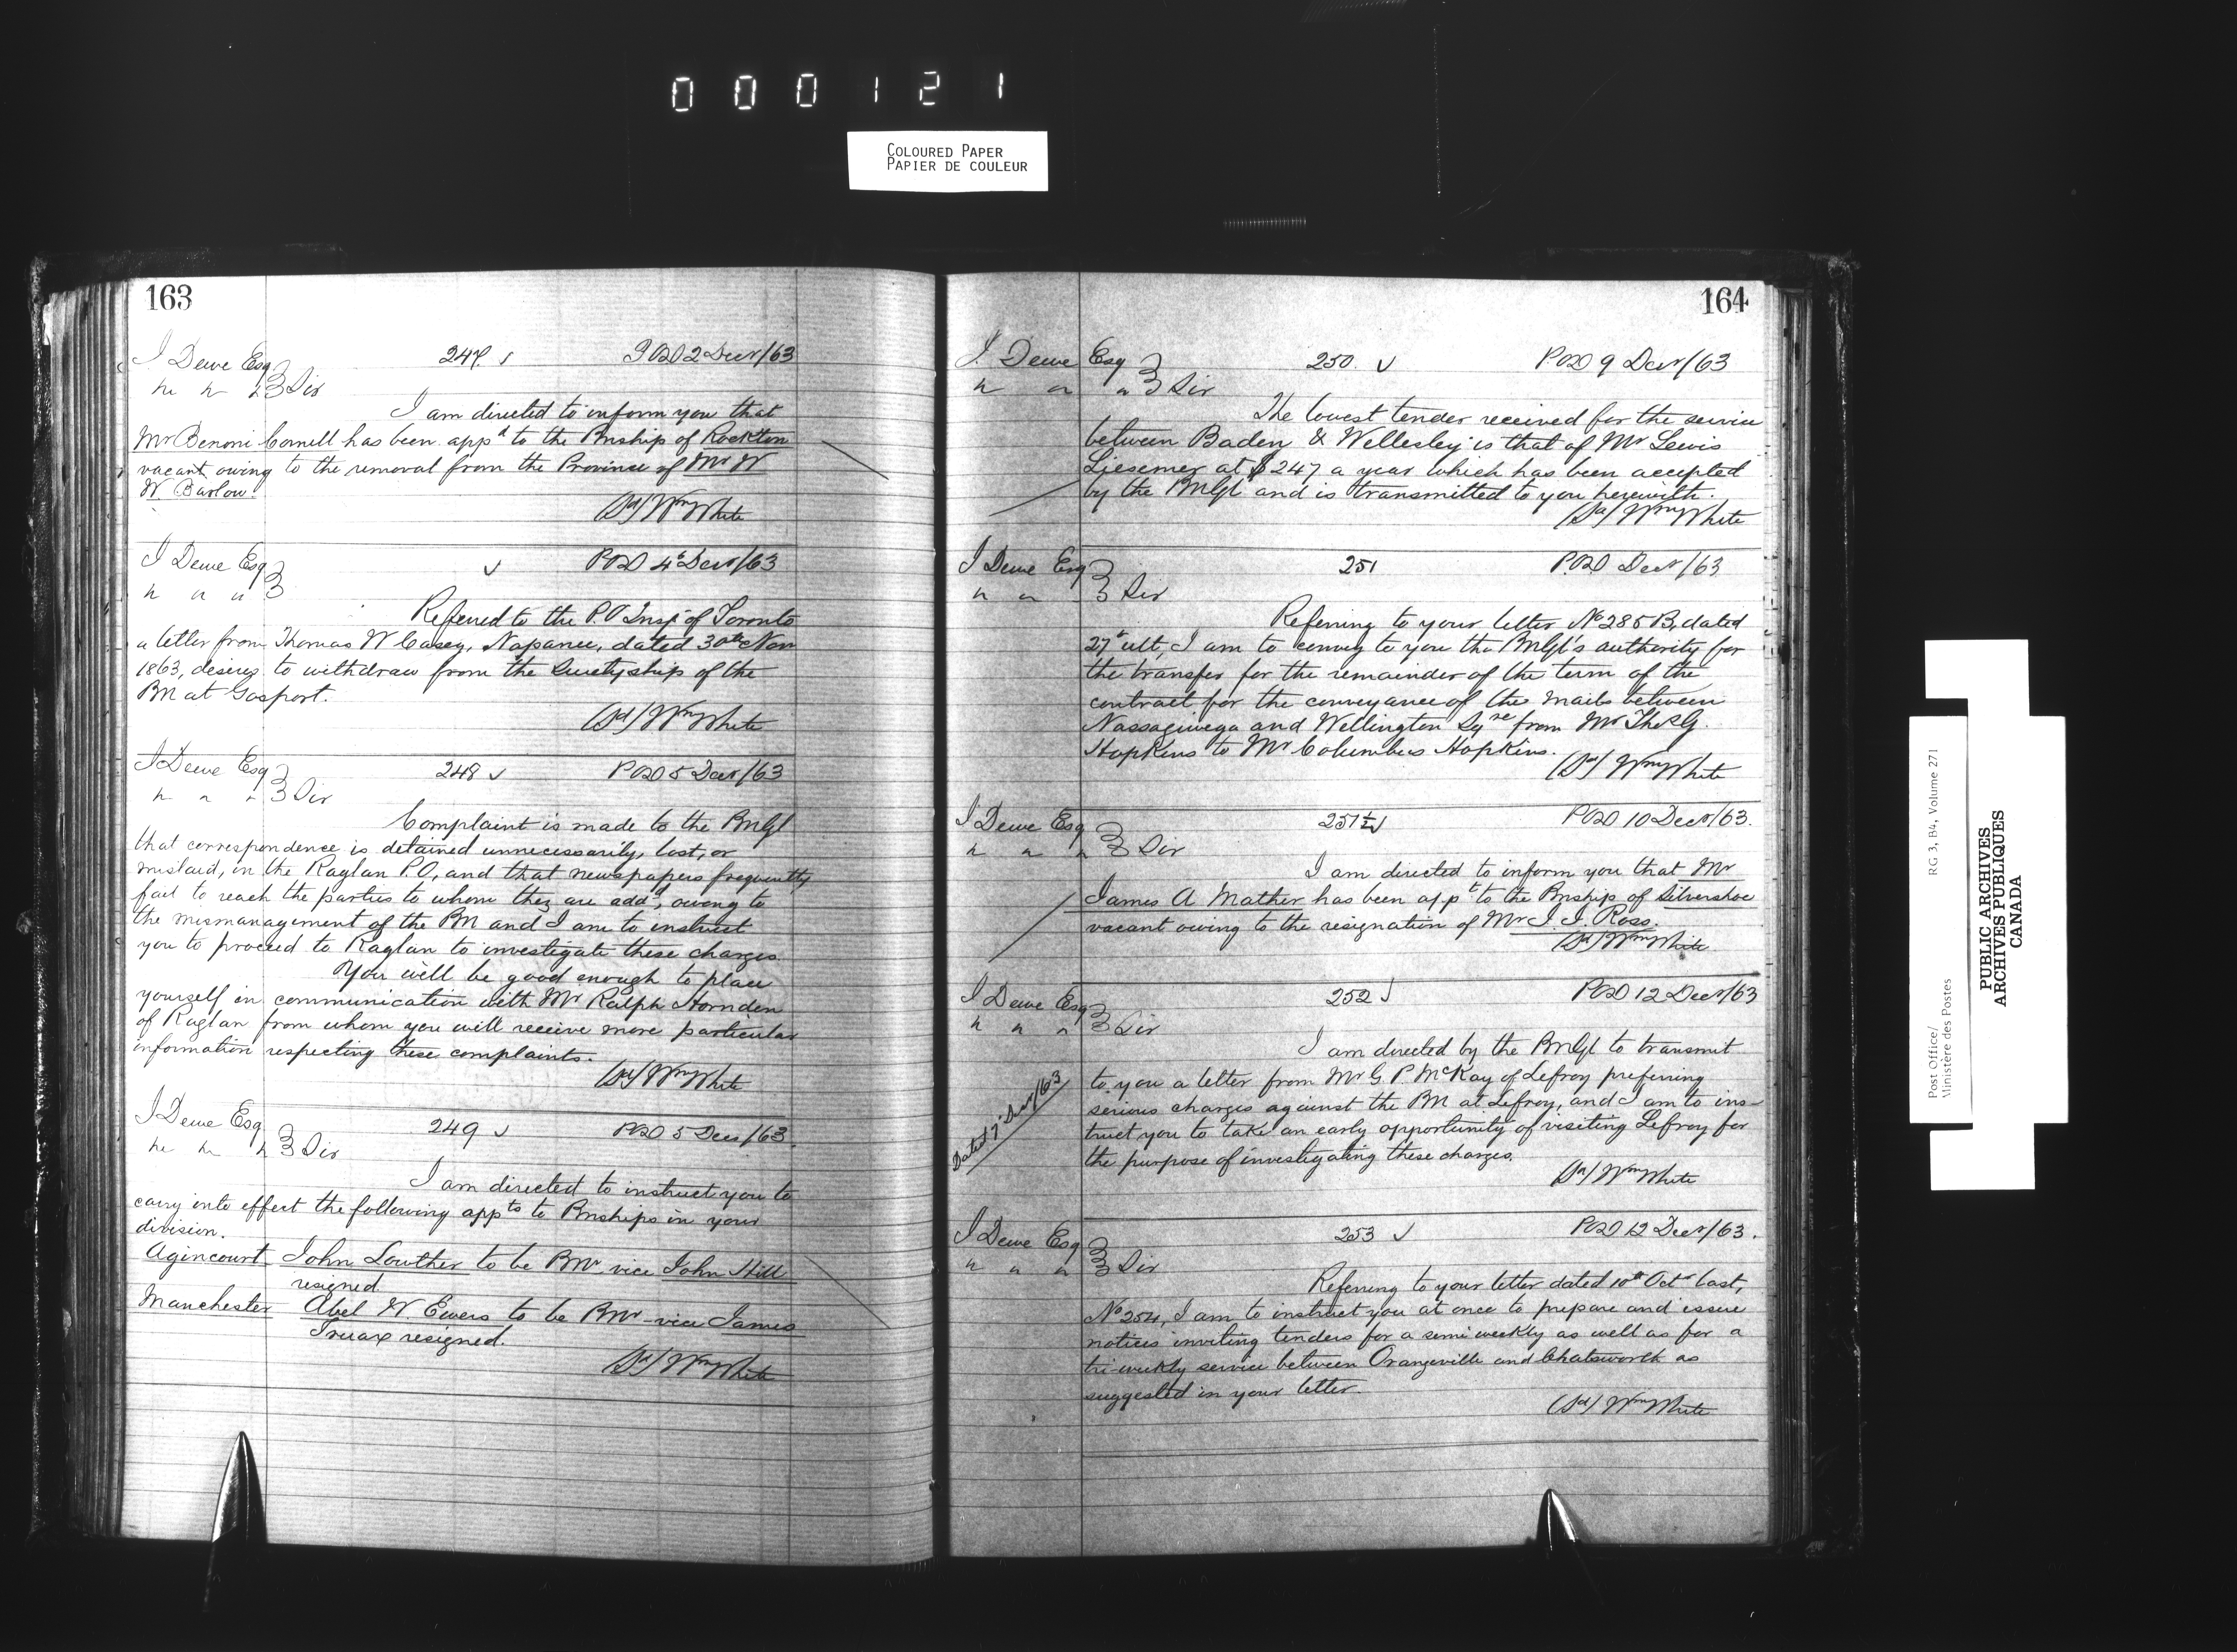 000121
COLOURED PAPER
PAPIER DE COULEUR
163
J Dewe Esq 247. POD 2 Decr/63
Sir
I am directed to inform you that
Mr Benoni Cornell has been appd to the Pmship of Rockton
vacant owing to the removal from the Province of Mr W
W. Barlow.
(Sd) Wm White
J Dewe Esq POD 4th Decr/63
Referred to the P.O Inspr of Toronto
a letter from Thomas W Casey, Napanee, dated 30th Nov
1863, desirg to withdraw from the Suretyship of the
PM at Gosport.
(Sd) Wm White
J Dewe Esq 248 POD 5 Decr/63
Sir
Complaint is made to the PmGl
that correspondence is detained unnecessarily, lost, or
mislaid, in the Raglan P.O, and that newspapers frequently
fail to reach the parties to whom they are addd, owing to
the mismanagement of the PM and I am to instruct
you to proceed to Raglan to investigate these charges.
You will be good enough to place
yourself in communication with Mr Ralph Hornden
of Raglan from whom you will receive more particular
information respecting these complaints.
(Sd) Wm White
J Dewe Esq 249 POD 5 Decr/63.
Sir
I am directed to instruct you to
carry into effect the following appts to Pmships in your
division.
Agincourt John Lowther to be Pmr vice John Hill
resigned
Manchester Abel W. Ewers to be Pmr vice James
Truax resigned.
(Sd) Wm White
164
J. Dewe Esq 250. POD 9 Decr/63
Sir
The lowest tender received for the service
between Baden & Wellesley is that of Mr Lewis
Liesemer at $247 a year which has been accepted
by the PmGl and is transmitted to you herewith.
(Sd) Wm White
J Dewe Esq 251 P.O.D Decr/63
Sir
Referring to your letter No 285 B, dated
27th ult, I am to convey to you the PmGl's authority for
the transfer for the remainder of the term of the
contract for the conveyance of the mails between
Nassagiwega and Wellington Sqre from Mr Thos G.
Hopkins to Mr Columbus Hopkins.
(Sd) Wm White
J Dewe Esq 251½ POD 10 Decr/63.
Sir
I am directed to inform you that Mr
James A Mather has been appt to the Pmship of Silvershoe
vacant owing to the resignation of Mr J. J. Ross.
(Sd) Wm White
J Dewe Esq 252 POD 12 Decr/63
Sir
I am directed by the PmGl to transmit
Dated 7 Decr/63
to you a letter from Mr G. P. McKay of Lefroy preferring
serious charges against the PM at Lefroy, and I am to ins-
truct you to take an early opportunity of visiting Lefroy for
the purpose of investigating these charges.
(Sd) Wm White
J Dewe Esq 253 POD 12 Decr/63.
Sir
Referring to your letter dated 10th Octr last,
No 254, I am to instruct you at once to prepare and issue
notices inviting tenders for a semi weekly as well as for a
tri-weekly service between Orangeville and Chatsworth as
suggested in your letter.
(Sd) Wm White
Post Office/ RG 3, B4, Volume 271
Ministère des Postes
PUBLIC ARCHIVES
ARCHIVES PUBLIQUES
CANADA